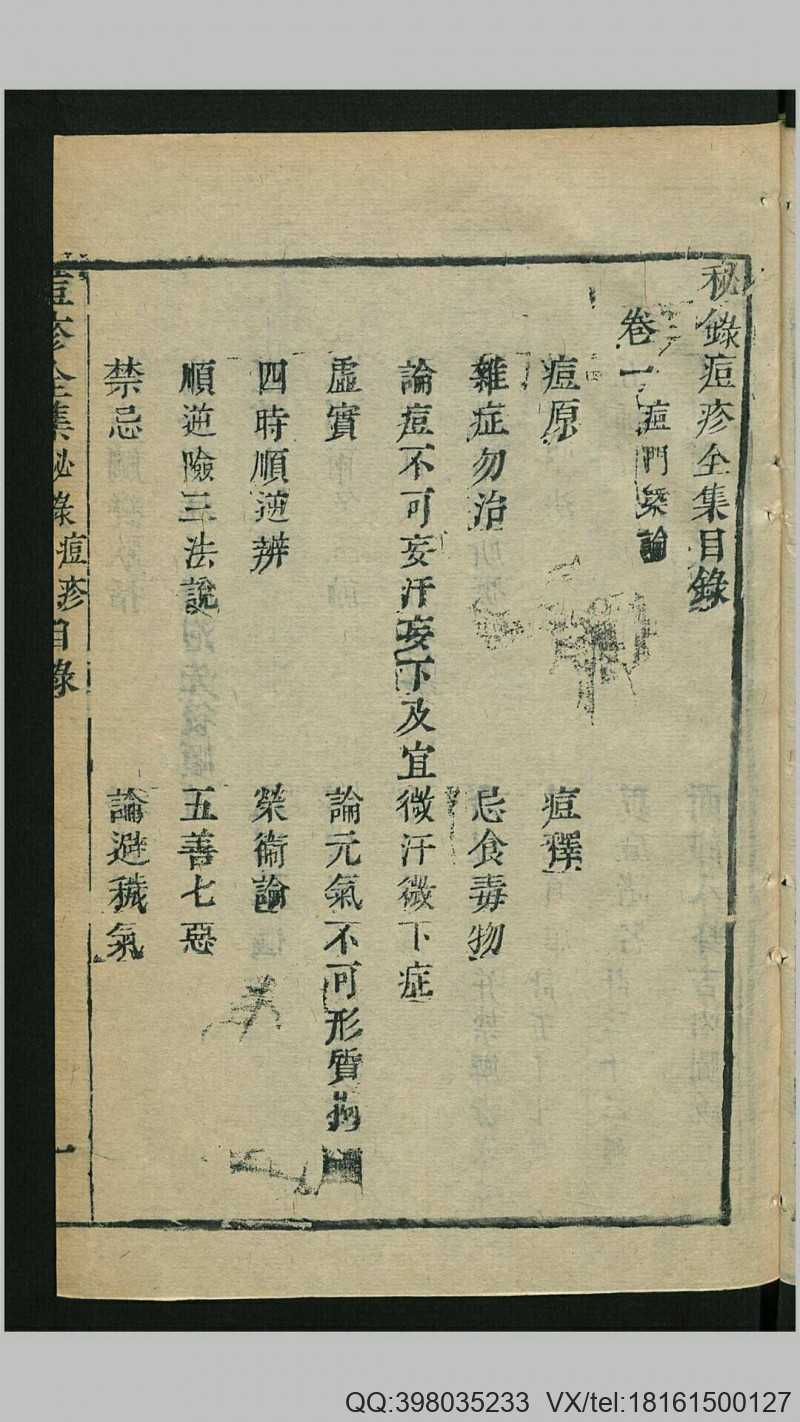 秘錄痘疹全集目錄
卷一 痘門槩論
痘原 痘釋
雜症勿治 忌食毒物
論痘不可妄汗妄下及宜微汗微下症
虛實 論元氣不可形質拘
四時順逆辨 榮衛論
順逆險三法說 五善七惡
禁忌 論避穢氣
痘疹全集秘錄痘疹目錄 一
QQ:398035233 VX/tel:18161500127